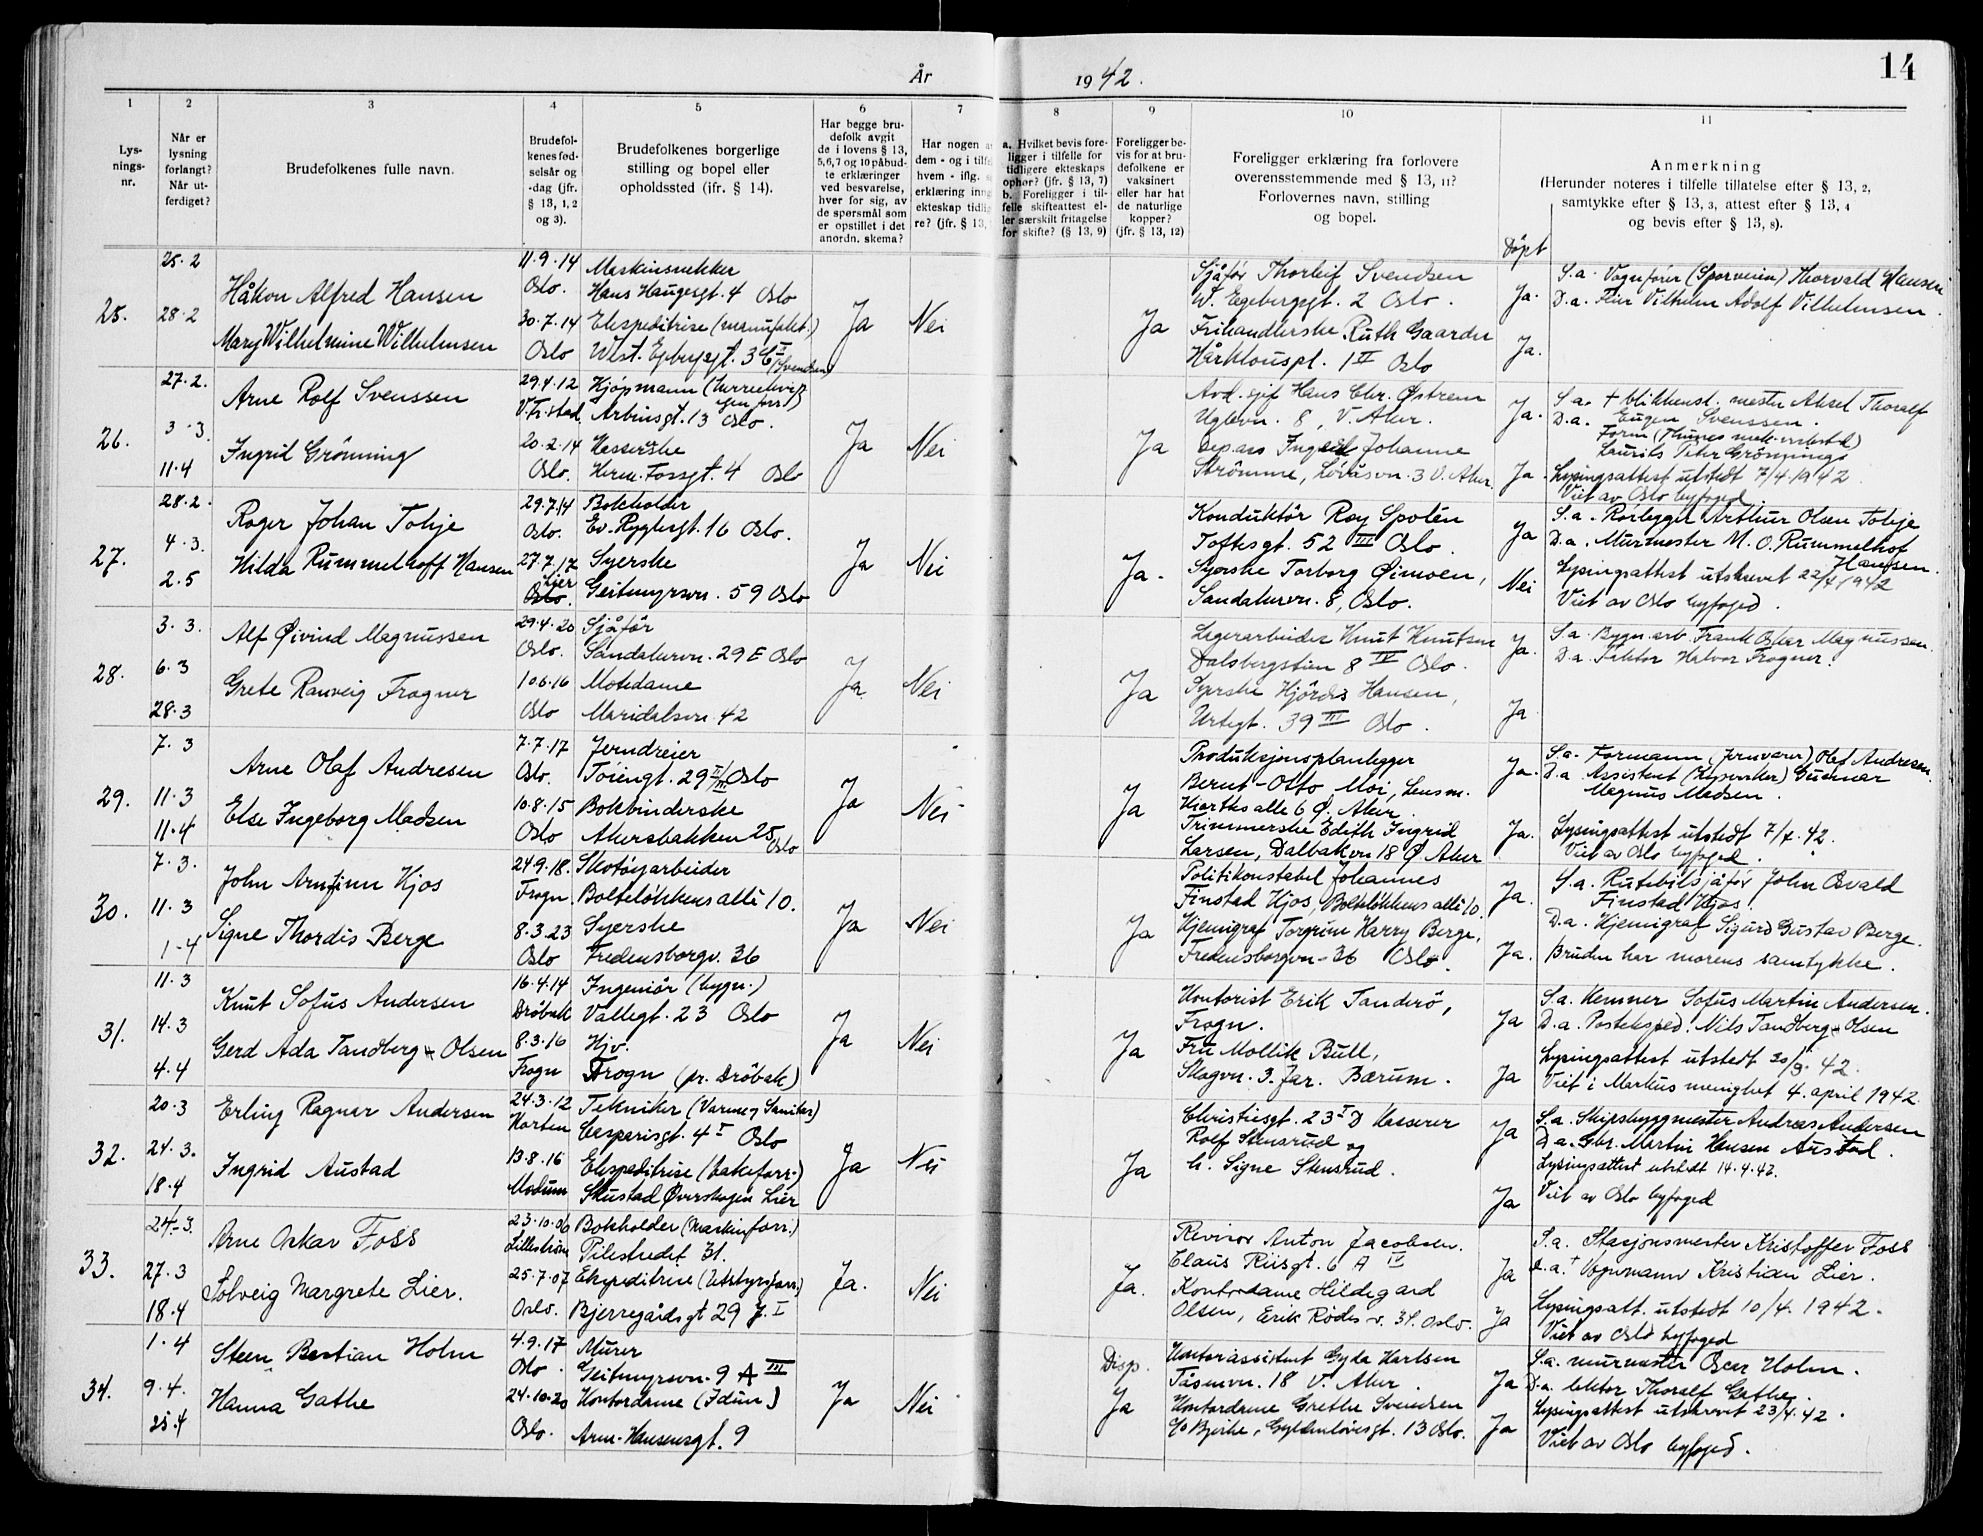 14
År 1942.
1 2 3 4 5 6 7 8 9 10 11
Lys-
nings-
nr.
Når er
lysning
forlangt?
Når ut-
ferdiget?
Brudefolkenes fulle navn.
Brudefol-
kenes fød-
selsår og
-dag (jfr.
§ 13, 1, 2
og 3).
Brudefolkenes borgerlige
stilling og bopel eller
opholdssted (jfr. § 14).
Har begge bru-
defolk avgit
de i lovens § 13,
5,6,7 og 10 påbud-
te erklæringer
ved besvarelse,
hver for sig, av
de spørsmål som
er opstillet i det
anordn. skema?
Har nogen a
dem - og i tilfe
hvem - iflg.
erklæring inng
ekteskap tidlig
re? (jfr. § 13,
a. Hvilket bevis fore-
ligger i tilfelle for
tidligere ekteskaps
ophør? (jfr. § 13, 7)
b. Foreligger i til-
felle skifteattest el-
ler særskilt fritagelse
for skifte? (§ 13, 9)
Foreligger be-
vis for at bru-
defolkene er
vaksinert
eller har hat
de naturlige
kopper?
(jfr. § 13, 12)
Foreligger erklæring fra forlovere
overensstemmende med § 13, 11?
Forlovernes navn, stilling
og bopel.
Anmerkning
(Herunder noteres i tilfelle tillatelse efter § 13, 2,
samtykke efter § 13, 3, attest efter § 13, 4
og bevis efter § 13, 8).
Døpt
25.
25.2
28.2
Håkon Alfred Hansen
Mary Wilhelmine Wilhelmsen
11.9.14
Oslo.
30.7.14
Oslo
Maskinsnekker
Hans Haugesgt. 4 Oslo
Ekspeditrise (manufakt.)
(Svendsen)
Ja
Nei
Ja
Sjåfør Thorleif Svendsen
W. Egebergsgt. 2 Oslo.
Frihandlerske Ruth Gaarder
1 II Oslo
Ja.
Ja.
S.a. Vognfører (Sporveien) Thorvald Hansen
D.a. Vilhelm Adolf Vilhelmsen.
26.
27.2.
3.3.
11.4
Arne Rolf Svenssen
Ingrid Grönning
29.4.12
V.Fr.stad
20.2.14
Oslo.
Kjøpmann
Arbinsgt. 13 Oslo.
Kasserske
Herm. Fossgt. 4 Oslo
Ja
Nei
Ja
Avd. sjef Hans Chr. Østrem
Uglevn. 8, V. Aker.
Johanne
Strömme, Lövåsvn. 3 V. Aker.
Ja.
Ja.
S.a. + blikkensl. mester Aksel Thoralf
D.a. Eugen Svenssen.
Form (Thunes mek. verksted)
Laurits Peter Grönning
Lysingsattest utstedt 7/4.1942
Viet av Oslo byfoged
27.
28.2.
4.3.
2.5
Roger Johan Tobje
Hilda Rummelhoff Hansen
29.7.14
Oslo.
27.7.17
Lier
Oslo.
Bokholder
Ev. Ryghsgt. 16 Oslo.
Syerske
Geitmyrsvn. 59 Oslo
Ja
Nei
Ja.
Konduktör Roy Spolén
Toftesgt. 52 III Oslo.
Syerske Torborg Øimoen,
Sandakervn. 8, Oslo.
Ja
Nei
S.a. Rörlegger Arthur Olsen Tobje
D.a. Murmester M. O. Rummelhof
Hansen.
Lysingsattest utskrevet 22/4 1942
Viet av Oslo byfoged.
28.
3.3.
6.3
28.3
Alf Øivind Magnussen
Grete Ranveig Frogner
29.4.20
Oslo.
10.6.16
Oslo
Sjåför
Sandakervn. 29 E Oslo
Motedame
Maridalsvn. 42
Ja
Nei
Ja
Lagerarbeider Knut Knutsen
Dalsbergstien 8 IV Oslo.
Syerske Hjördis Hansen,
Urtegt. 39 III Oslo.
Ja.
Ja
S.a. Bygn.arb. Frank Oskar Magnussen.
D.a. Faktor Halvor Frogner.
29.
7.3
11.3
11.4
Arne Olaf Andresen
Else Ingeborg Madsen
7.7.17
Oslo.
10.8.15
Oslo
Jerndreier
Töiengt. 29 I/III Oslo
Bokbinderske
Akersbakken 25 Oslo
Ja
Nei
Ja
Produksjonsplanlegger
Bernt-Otto Moi, Lensm.
Hiorths alle 6 Ø. Aker
Trimmerske Edith Ingrid
Larsen, Dalbakvn 18 Ø Aker
Ja.
Ja.
S.a. Formann (Jernvarer) Olaf Andresen.
D.a. Assistent (Lysverker) Gunnar
Magnus Madsen.
Lysingsattest utstedt 7/4.42.
Viet av Oslo byfoged.
30.
7.3.
11.3
1.4
John Arnfinn Kjos
Signe Thordis Berge
24.9.18.
Frogn.
8.3.23
Oslo
Skotøyarbeider
Bolteløkkens allé 10.
Syerske
Fredensborgv. 36
Ja
Nei
Ja
Politikonstabel Johannes
Finstad Kjos, Bolteløkkens allé 10.
Kjemigraf Torgrim Harry Berge,
Fredensborgvn. 36 Oslo.
Ja.
Ja.
S.a. Rutebilsjåför John Osvald
Finstad Kjos.
D.a. Kjemigraf Sigurd Gustav Berge.
Bruden har morens samtykke.
31.
11.3
14.3
4.4
Knut Sofus Andersen
Gerd Ada Tandberg-Olsen
16.4.14
Drøbak
8.3.16
Frogn
Ingeniör (bygn.)
Vallegt. 23 Oslo
Hjv.
Frogn (pr. Drøbak)
Ja
Nei
Ja
Kontorist Erik Tanderö,
Frogn.
Fru Mollik Bull,
Skogvn. 3. Jar. Bærum.
Ja
Ja
S.a. Kemner Sofus Martin Andersen.
D.a. Posteksped. Nils Tandberg-Olsen
Lysingsattest utstedt 20/3.42.
Viet i Markus menighet 4. april 1942.
32.
20.3
24.3.
18.4
Erling Ragnar Andersen
Ingrid Austad
24.3.12
Horten
13.8.16
Modum
Tekniker (Varme og Sanitær)
Casparisgt. 4 I Oslo
Ekspeditrise
Skustad Øvershogen Lier
Ja
Nei
Ja
Christiesgt. 23 I D Kasserer
Rolf Stensrud og
h. Signe Stensrud.
Ja
Ja
S.a. Skipsbyggmester Andreas Andersen
D.a. Gbr. Martin Hansen Austad.
Lysingsattest utstedt 14.4.42.
Viet av Oslo byfoged
33.
24.3.
27.3
18.4
Arne Oskar Foss
Solveig Margrete Lier.
23.10.06
Lilleström
25.7.07
Oslo.
Bokholder (Maskinforr.)
Pilestredet 31.
Ekspeditrise (Utstyrsforr.)
Bjerregårds gt 29 J. I
Ja.
Nei
Ja.
Revisor Anton Jacobsen.
Claus Riisgt. 6 A IV
Kontordame Hildegard
Olsen, Erik Rödes v. 31. Oslo.
Ja
Ja
S.a. Stasjonsmester Kristoffer Foss
D.a. + Vognmann Kristian Lier.
Lysingsatt. utstedt 10/4. 1942.
Viet av Oslo byfoged
34.
1.4
9.4.
25.4
Steen Bastian Holm
Hanna Gathe
4.9.17
Oslo.
24.10.20
Oslo.
Murer
Geitmyrsvn. 9 A III
Kontordame (Idun)
Arne-Hansensgt. 9
Ja
Nei
Disp.
Ja
Kontorassistent Gyda Karlsen
Tåsenvn. 18 V. Aker.
Kontordame Grethe Svendsen
c/o Bjerke, Gyldenløvesgt. 13 Oslo.
Ja
Ja
S.a. murmester Oscar Holm.
D.a. lektor Thoralf Gathe.
Lysingsattest utskrevet 23/4.42.
Viet av Oslo byfoged.